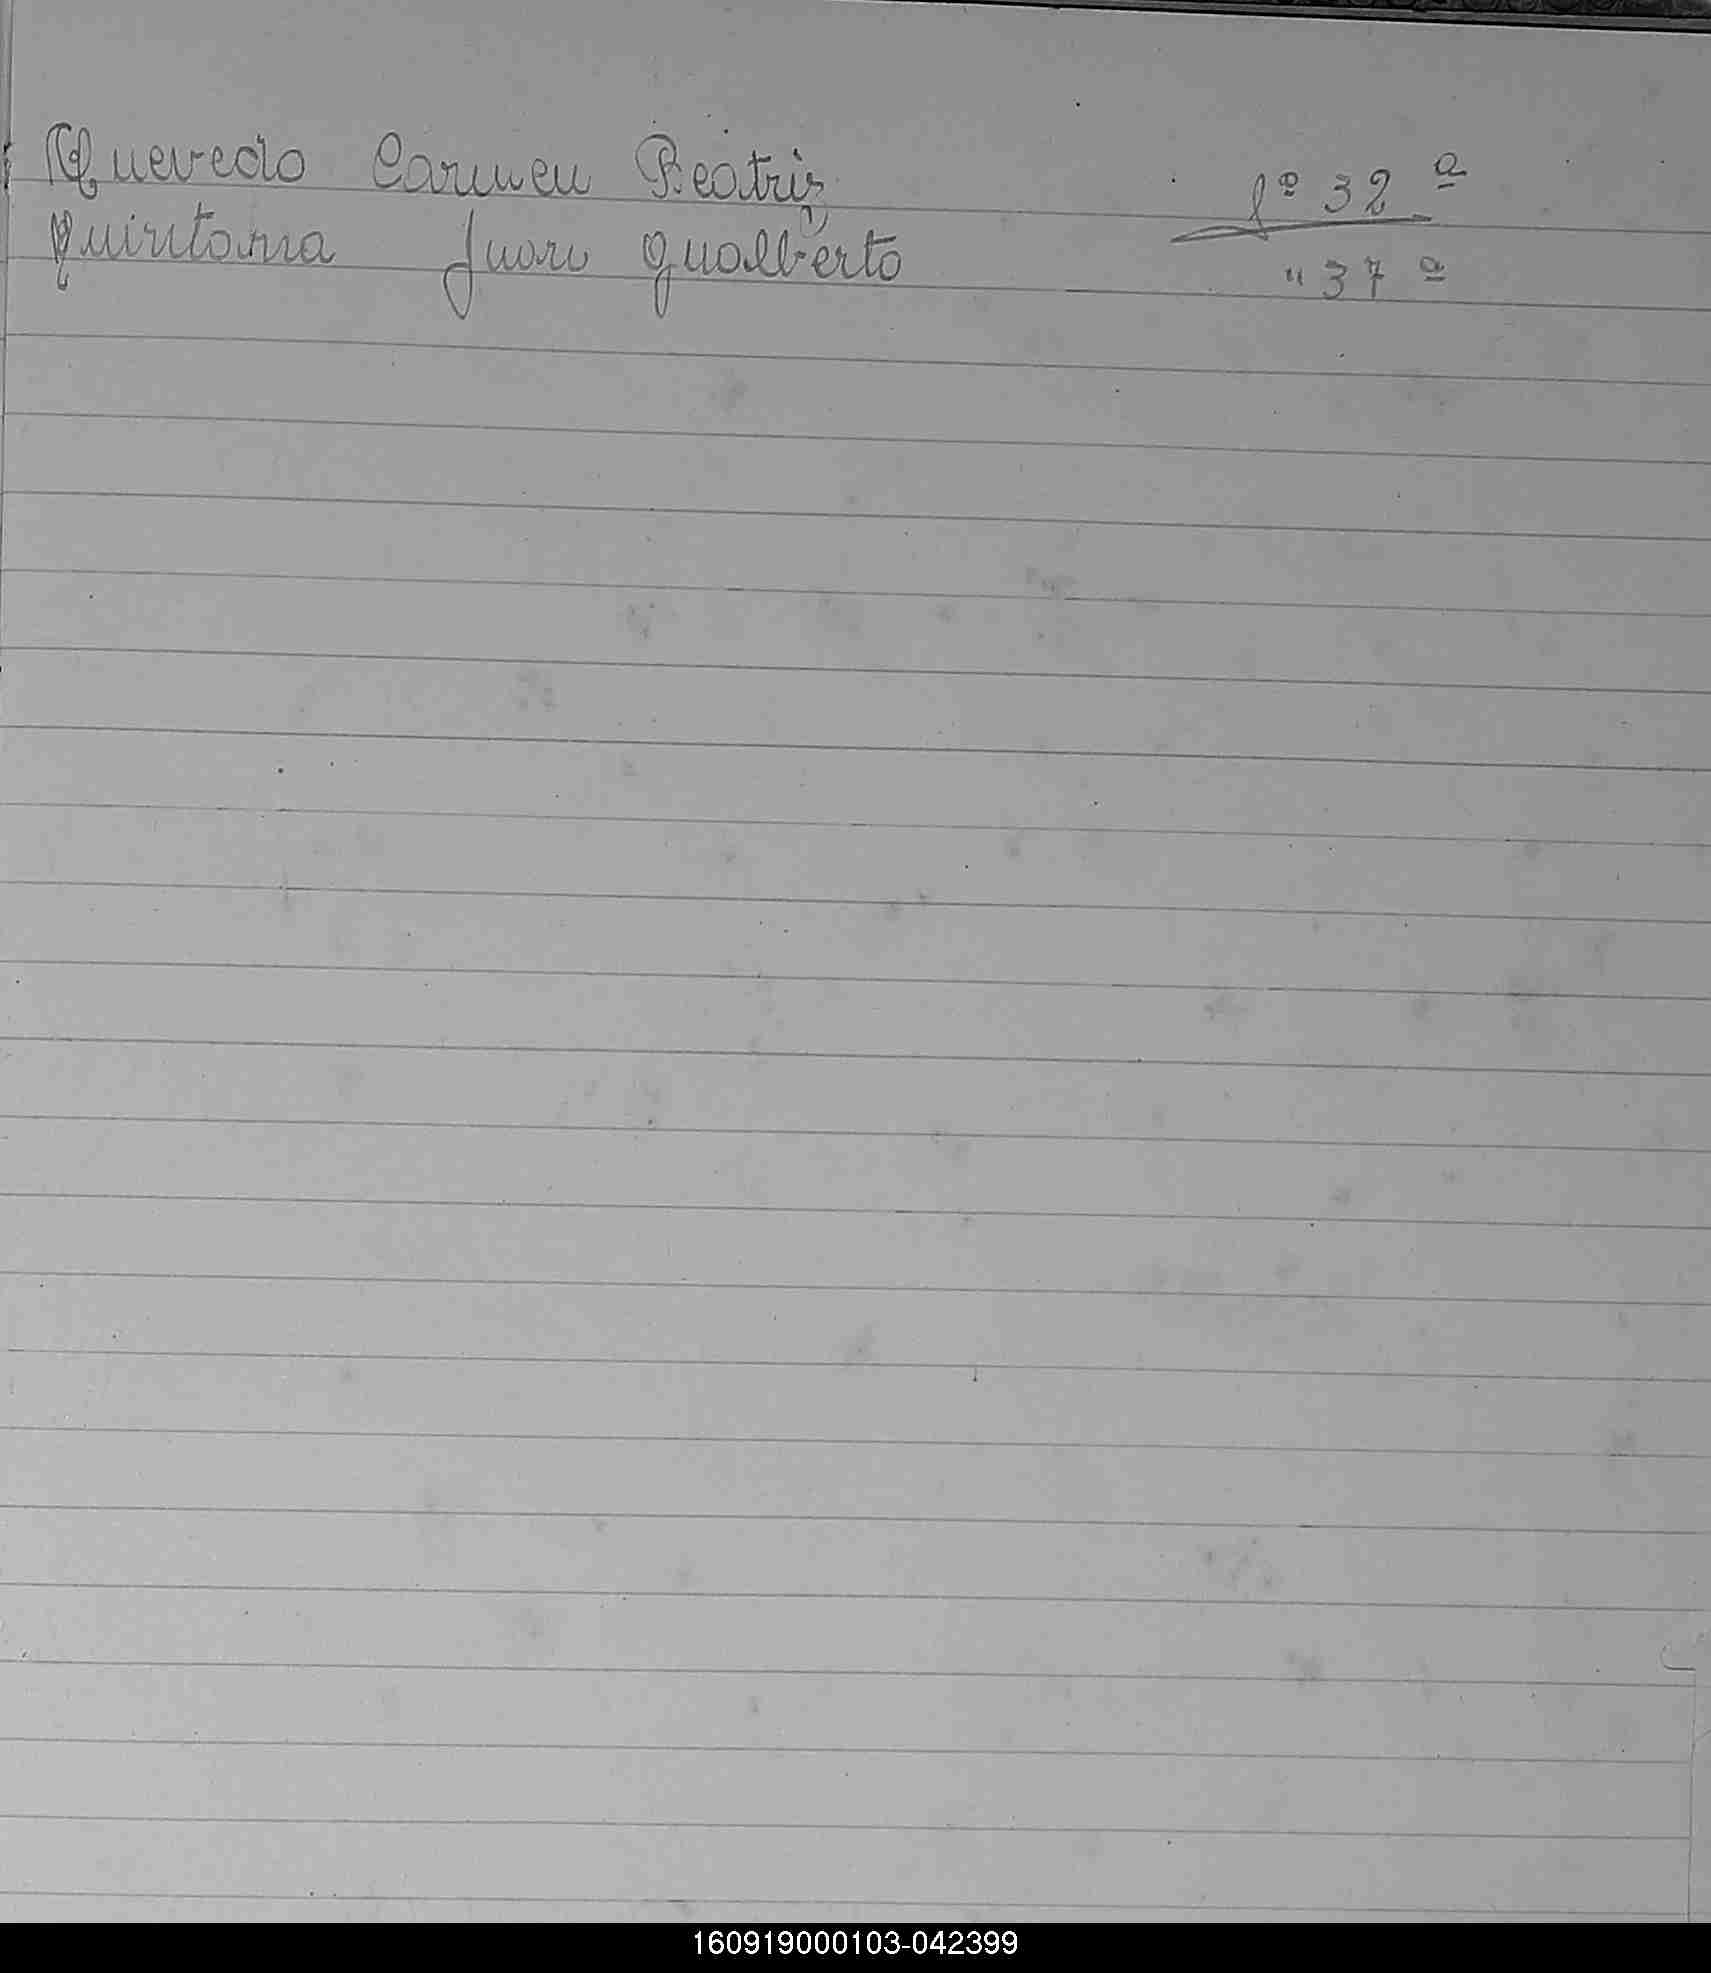 Quevedo Carmen Beatriz fº 32 ª
Quintana Juan Gualberto " 37 ª
160919000103-042399